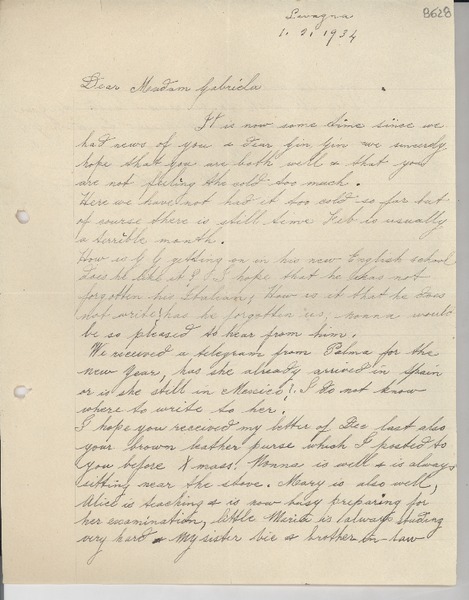 8628
Lavagna
1. 2. 1934
Dear Meadam Gabriela
It is now some time since we
had news of you & dear Gin Gin we sincerely
hope that you are both well & that you
are not feeling the cold too much.
Here we have not had it too cold so far but
of course there is still time Feb is usually
a terrible month.
How is G G getting on in his new English school
Does he like it? I hope that he has not
forgotten his Italian; How is it that he does
not write? has he forgotten us, nonna would
be so pleased to hear from him.
We received a telegram from Palma for the
new Year, has she already arrived in Spain
or is she still in Messico? I do not know
where to write to her.
I hope you received my letter of Dec last also
your brown leather purse which I posted to
you before Xmass. Nonna is well & is always
sitting near the stove. Mary is also well,
Alice is teaching & is now busy preparing for
her examination, little Maria is always studing
very hard My sister Vic & brother-in-law